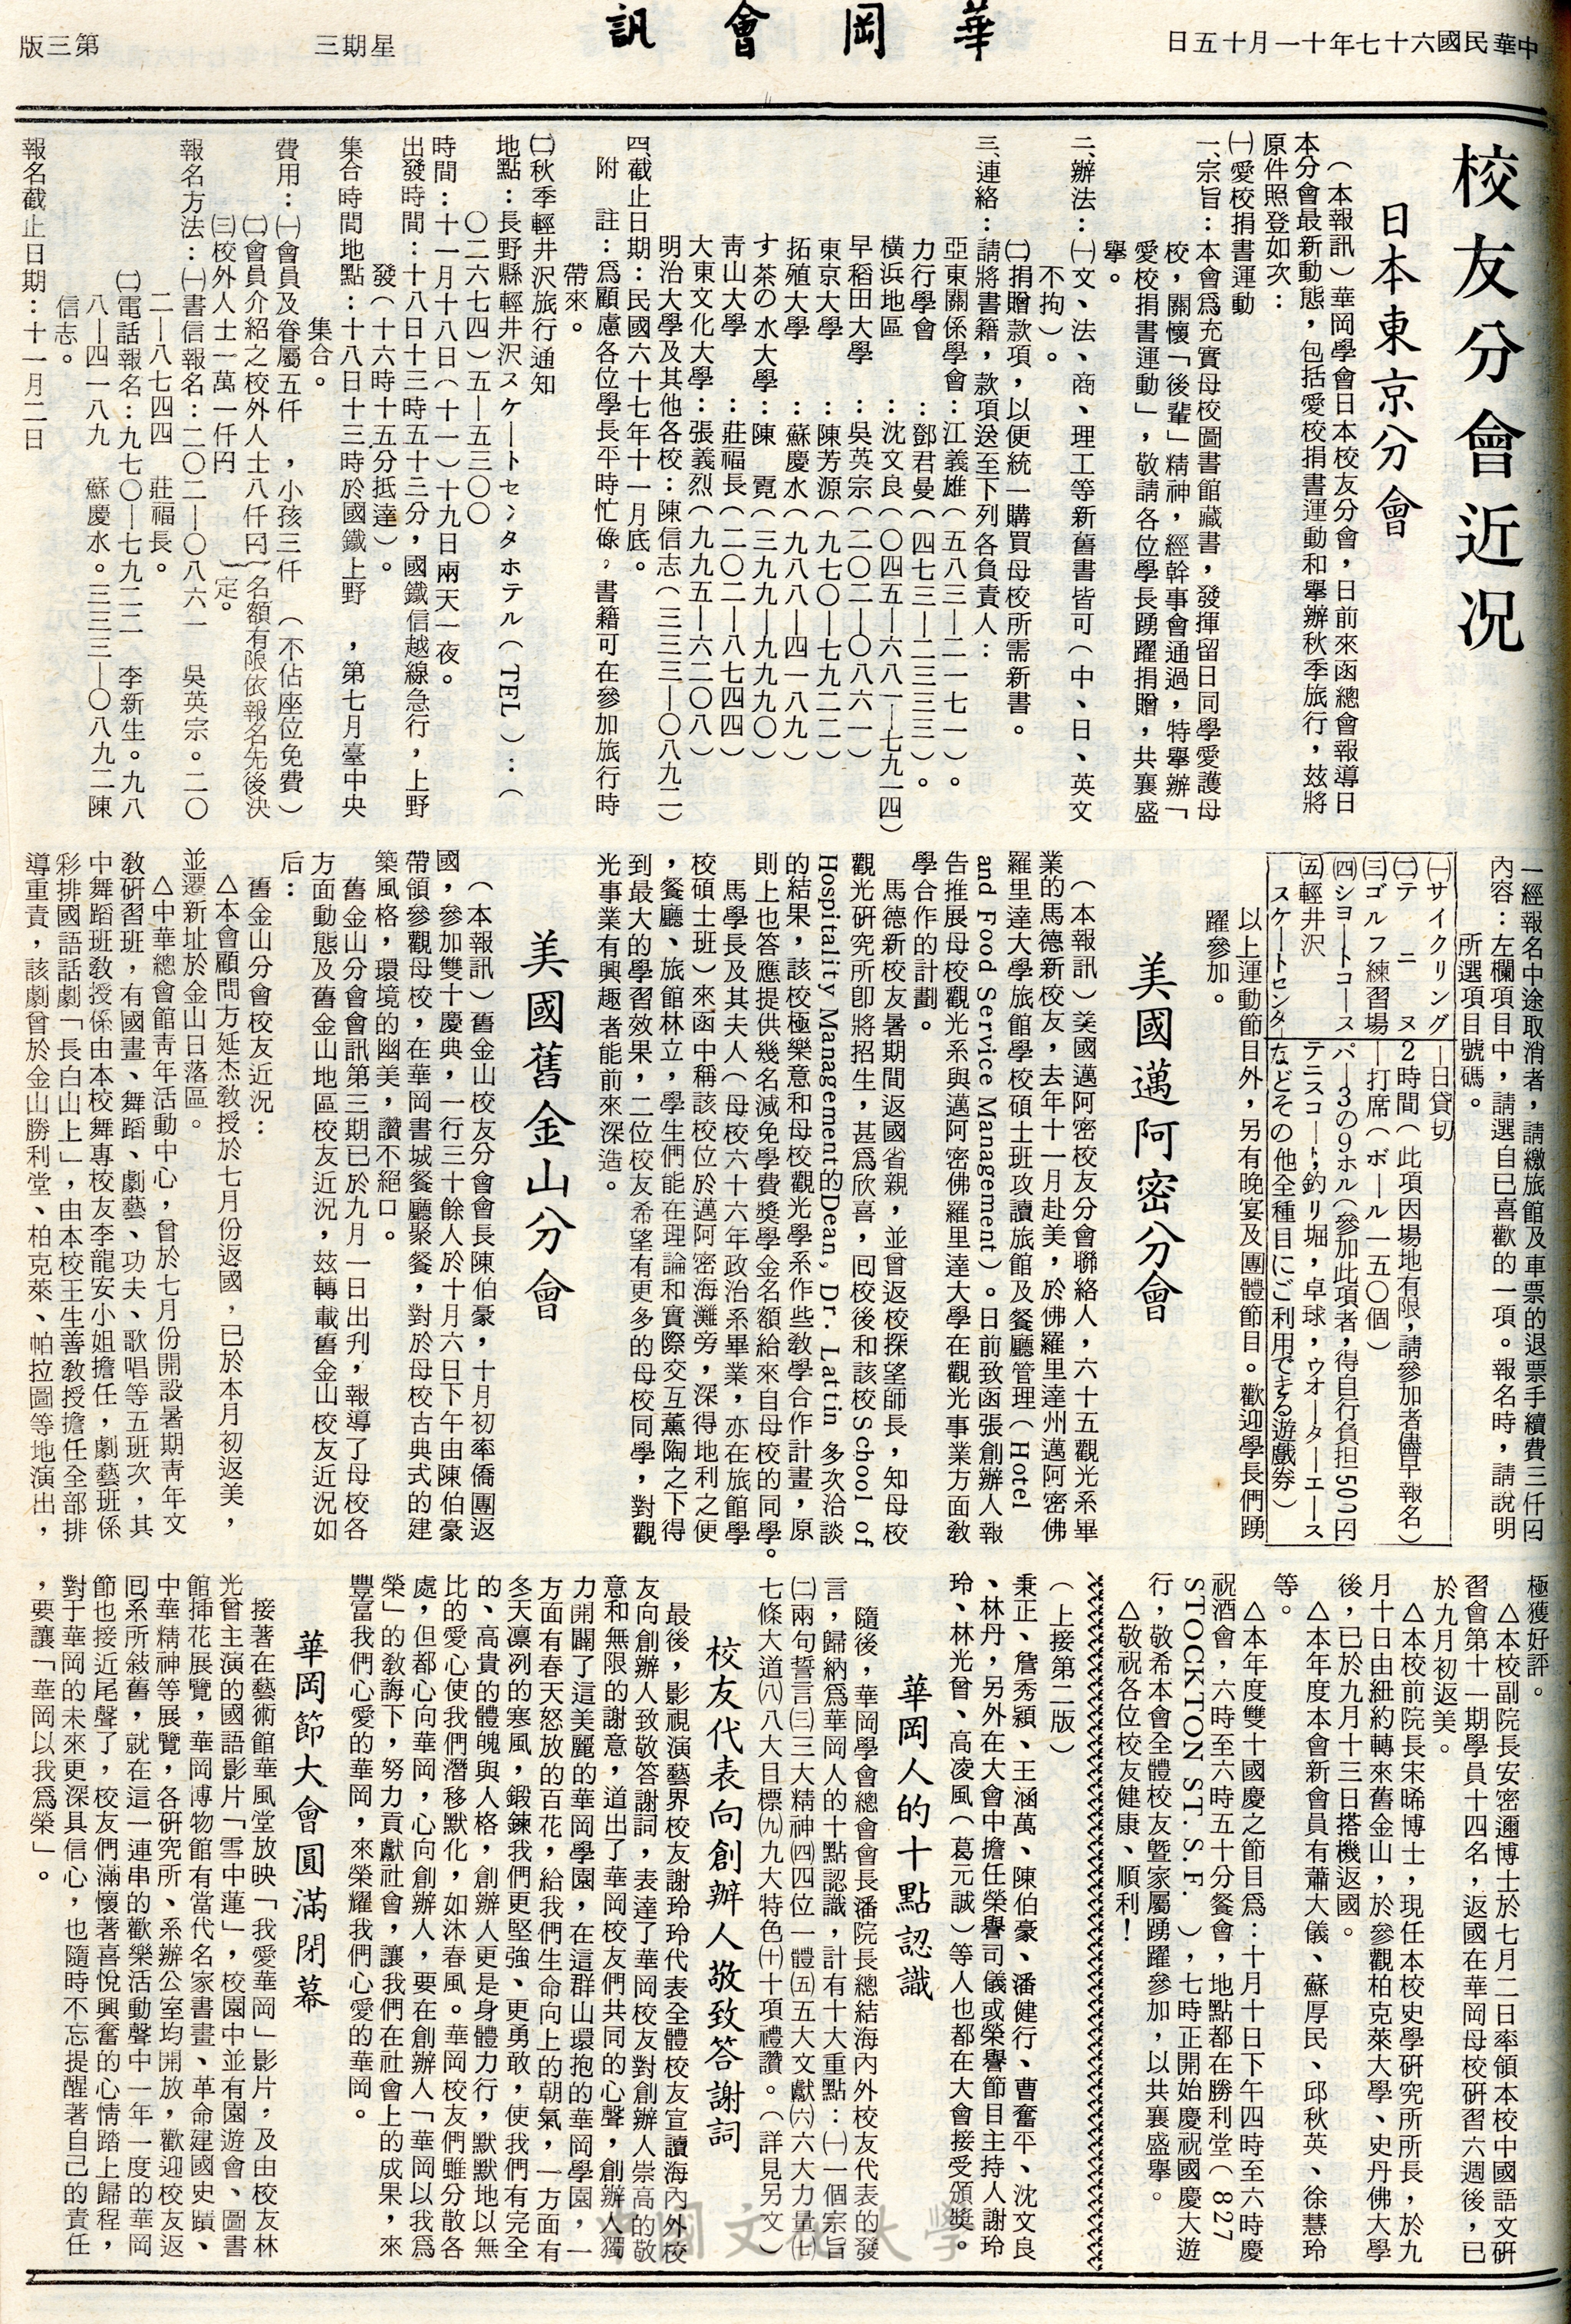 中華民國六十七年十一月十五日
華岡會訊
星期三
第三版
校友分會近況
日本東京分會
（本報訊）華岡學會日本校友分會，日前來函總會報導日
本分會最新動態，包括愛校捐書運動和舉辦秋季旅行，茲將
原件照登如次：
㈠愛校捐書運動
一、宗旨：本會爲充實母校圖書館藏書，發揮留日同學愛護母
校，關懷「後輩」精神，經幹事會通過，特舉辦「
愛校捐書運動」，敬請各位學長踴躍捐贈，共襄盛
舉。
二、辦法：㈠文、法、商、理工等新舊書皆可（中、日、英文
不拘）。
㈡捐贈款項，以便統一購買母校所需新書。
三、連絡：請將書籍，款項送至下列各負責人：
亞東關係學會：江義雄（五八三—二一七一）。
力行學會　：鄧君曼（四七三—二三三三）。
橫浜地區　：沈文良（〇四五—六八一—七九一四）
早稻田大學　：吳英宗（二〇二—〇八六一）
東京大學　：陳芳源（九七〇—七九二二）
拓殖大學　：蘇慶水（九八八—四一八九）
す茶の水大學：陳　霓（三九九—九九九〇）
靑山大學　：莊福長（二〇二—八七四四）
大東文化大學：張義烈（九九五—六二〇八）
明治大學及其他各校：陳信志（三三三—〇八九二）
四、截止日期：民國六十七年十一月底。
附　註：爲顧慮各位學長平時忙碌，書籍可在參加旅行時
帶來。
㈡秋季輕井沢旅行通知
地點：長野縣輕井沢スケートセンタホテル（TEL）：（
〇二六七四）五—五三〇〇
時間：十一月十八日（十一）十九日兩天一夜。
出發時間：十八日十三時五十三分，國鐵信越線急行，上野
發（十六時十五分抵達）。
集合時間地點：十八日十三時於國鐵上野　，第七月臺中央
集合。
費用：㈠會員及眷屬五仟　，小孩三仟　（不佔座位免費）
㈡會員介紹之校外人士八仟円｝名額有限依報名先後決
㈢校外人士一萬一仟円　定。
報名方法：㈠書信報名：二〇二—〇八六一　吳英宗。二〇
二—八七四四　莊福長。
㈡電話報名：九七〇—七九二二　李新生。九八
八—四一八九　蘇慶水。三三三—〇八九二陳
信志。
報名截止日期：十一月二日
一經報名中途取消者，請繳旅館及車票的退票手續費三仟円
內容：左欄項目中，請選自己喜歡的一項。報名時，請說明
所選項目號碼。
㈠サイクリング　一日貸切
㈡テ　ニ　ヌ　2時間（此項因場地有限，請參加者儘早報名）
㈢ゴルフ練習場　一打席（ボール一五〇個）
㈣ショートコース　パー3の9ホル（參加此項者，得自行負担500円
㈤輕井沢　テニスコート，釣リ堀，卓球，ウオーターエース
スケートセンター　などその他全種目にご利用できる遊戲券）
以上運動節目外，另有晚宴及團體節目。歡迎學長們踴
躍參加。
美國邁阿密分會
（本報訊）美國邁阿密校友分會聯絡人，六十五觀光系畢
業的馬德新校友，去年十一月赴美，於佛羅里達州邁阿密佛
羅里達大學旅館學校碩士班攻讀旅館及餐廳管理（Hotel
and Food Service Management）。日前致函張創辦人報
告推展母校觀光系與邁阿密佛羅里達大學在觀光事業方面敎
學合作的計劃。
馬德新校友暑期間返國省親，並曾返校探望師長，知母校
觀光硏究所卽將招生，甚爲欣喜，回校後和該校School of
Hospitality Management的Dean, Dr. Lattin 多次洽談
的結果，該校極樂意和母校觀光學系作些敎學合作計畫，原
則上也答應提供幾名減免學費獎學金名額給來自母校的同學。
馬學長及其夫人（母校六十六年政治系畢業，亦在旅館學
校碩士班）來函中稱該校位於邁阿密海灘旁，深得地利之便
，餐廳、旅館林立，學生們能在理論和實際交互薰陶之下得
到最大的學習效果，二位校友希望有更多的母校同學，對觀
光事業有興趣者能前來深造。
美國舊金山分會
（本報訊）舊金山校友分會會長陳伯豪，十月初率僑團返
國，參加雙十慶典，一行三十餘人於十月六日下午由陳伯豪
帶領參觀母校，在華岡書城餐廳聚餐，對於母校古典式的建
築風格，環境的幽美，讚不絕口。
舊金山分會會訊第三期已於九月一日出刋，報導了母校各
方面動態及舊金山地區校友近況，茲轉載舊金山校友近況如
后：
舊金山分會校友近況：
△本會顧問方延杰敎授於七月份返國，已於本月初返美，
並遷新址於金山日落區。
△中華總會館靑年活動中心，曾於七月份開設暑期靑年文
敎硏習班，有國畫、舞蹈、劇藝、功夫、歌唱等五班次，其
中舞蹈班敎授係由本校舞專校友李龍安小姐擔任，劇藝班係
彩排國語話劇「長白山上」，由本校王生善敎授擔任全部排
導重責，該劇曾於金山勝利堂、柏克萊、帕拉圖等地演出，
極獲好評。
△本校副院長安密邇博士於七月二日率領本校中國語文硏
習會第十一期學員十四名，返國在華岡母校硏習六週後，已
於九月初返美。
△本校前院長宋晞博士，現任本校史學硏究所所長，於九
月十日由紐約轉來舊金山，於參觀柏克萊大學、史丹佛大學
後，已於九月十三日搭機返國。
△本年度本會新會員有蕭大儀、蘇厚民、邱秋英、徐慧玲
等。
△本年度雙十國慶之節目爲：十月十日下午四時至六時慶
祝酒會，六時至六時五十分餐會，地點都在勝利堂（827
STOCKTON ST.S.F.），七時正開始慶祝國慶大遊
行，敬希本會全體校友曁家屬踴躍參加，以共襄盛舉。
△敬祝各位校友健康、順利！
（上接第二版）
秉正、詹秀穎、王涵萬、陳伯豪、潘健行、曹奮平、沈文良
、林丹，另外在大會中擔任榮譽司儀或榮譽節目主持人謝玲
玲、林光曾、高凌風（葛元誠）等人也都在大會接受頒獎。
華岡人的十點認識
隨後，華岡學會總會會長潘院長總結海內外校友代表的發
言，歸納爲華岡人的十點認識，計有十大重點：㈠一個宗旨
㈡兩句誓言㈢三大精神㈣四位一體㈤五大文獻㈥六大力量㈦
七條大道㈧八大目標㈨九大特色㈩十項禮讚。（詳見另文）
校友代表向創辦人敬致答謝詞
最後，影視演藝界校友謝玲玲代表全體校友宣讀海內外校
友向創辦人致敬答謝詞，表達了華岡校友對創辦人崇高的敬
意和無限的謝意，道出了華岡校友們共同的心聲，創辦人獨
力開闢了這美麗的華岡學園，在這群山環抱的華岡學園，一
方面有春天怒放的百花，給我們生命向上的朝氣，一方面有
冬天凜冽的寒風，鍛鍊我們更堅強、更勇敢，使我們有完全
的、高貴的體魄與人格，創辦人更是身體力行，默默地以無
比的愛心使我們潛移默化，如沐春風。華岡校友們雖分散各
處，但都心向華岡，心向創辦人，要在創辦人「華岡以我爲
榮」的敎誨下，努力貢獻社會，讓我們在社會上的成果，來
豐富我們心愛的華岡，來榮耀我們心愛的華岡。
華岡節大會圓滿閉幕
接著在藝術館華風堂放映「我愛華岡」影片，及由校友林
光曾主演的國語影片「雪中蓮」，校園中並有園遊會、圖書
館揷花展覽，華岡博物館有當代名家書畫、革命建國史蹟、
中華精神等展覽，各硏究所、系辦公室均開放，歡迎校友返
回系所敍舊，就在這一連串的歡樂活動聲中一年一度的華岡
節也接近尾聲了，校友們滿懷著喜悅興奮的心情踏上歸程，
對于華岡的未來更深具信心，也隨時不忘提醒著自己的責任
，要讓「華岡以我爲榮」。
中國文化大學